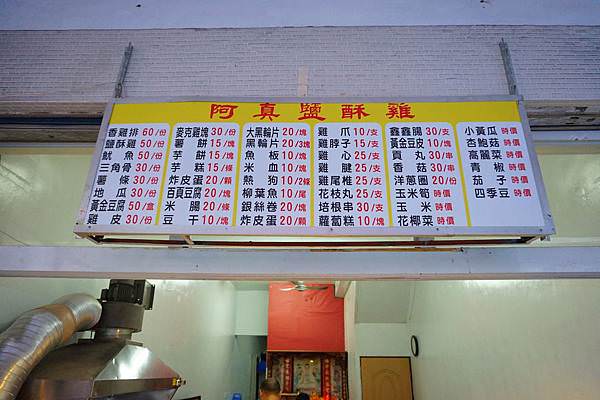 阿真鹽酥雞
香雞排 60/份
鹽酥雞 50/份
魷魚 50/份
三角骨 30/份
薯條 30/份
地瓜 30/份
黃金豆腐 50/盒
雞皮 30/份
麥克雞塊 30/份
薯餅 15/塊
芋餅 15/塊
芋糕 15/條
炸皮蛋 20/顆
百頁豆腐 20/塊
米腸 20/條
豆干 10/塊
大黑輪片 20/塊
黑輪片 20/3塊
魚板 10/塊
米血 10/塊
熱狗 10/2條
柳葉魚 10/尾
銀絲卷 20/塊
炸皮蛋 20/顆
雞爪 10/支
雞脖子 15/支
雞心 25/支
雞腱 25/支
雞尾椎 25/支
花枝丸 25/支
培根串 30/支
蘿蔔糕 10/塊
鑫鑫腸 30/支
黃金豆皮 10/塊
貢丸 30/串
香菇 30/串
洋蔥圈 20/份
玉米筍 時價
玉米 時價
花椰菜 時價
小黃瓜 時價
杏鮑菇 時價
高麗菜 時價
青椒 時價
茄子 時價
四季豆 時價